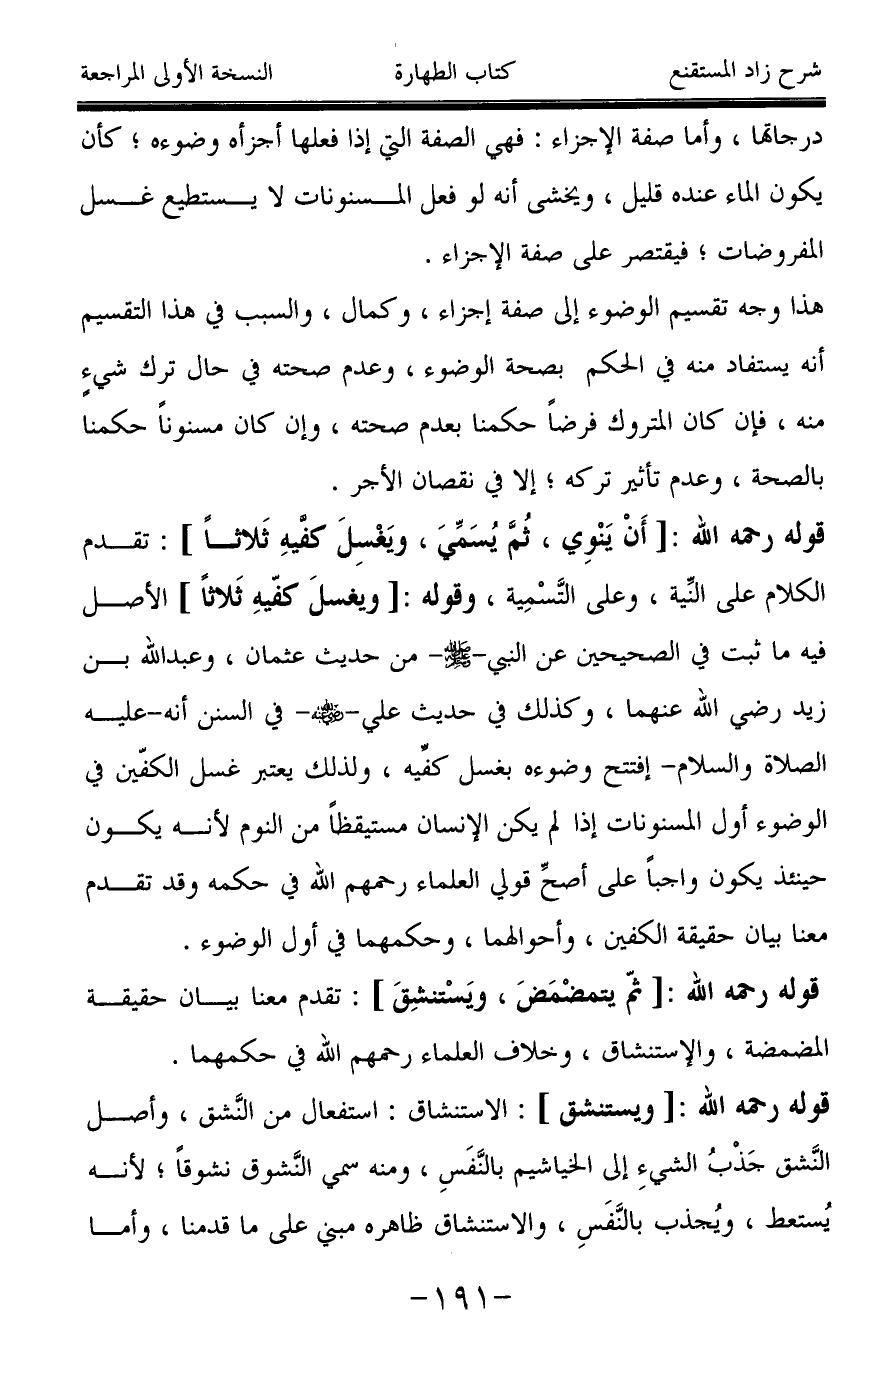 شرح زاد المستقنع كتاب الطهارة النسخة الأولى المراجعة
درجاتها ، وأما صفة الإجزاء : فهي الصفة التي إذا فعلها أجزأه وضوءه ؛ كأن
يكون الماء عنده قليل ، ويخشى أنه لو فعل المسنونات لا يستطيع غسل
المفروضات ؛ فيقتصر على صفة الإجزاء .
هذا وجه تقسيم الوضوء إلى صفة إجزاء ، وكمال ، والسبب في هذا التقسيم
أنه يستفاد منه في الحكم بصحة الوضوء ، وعدم صحته في حال ترك شيءٍ
منه ، فإن كان المتروك فرضاً حكمنا بعدم صحته ، وإن كان مسنوناً حكمنا
بالصحة ، وعدم تأثير تركه ؛ إلا في نقصان الأجر .
قوله رحمه الله :[ أَنْ يَنْوِي ، ثُمَّ يُسَمِّيَ ، ويَغْسِلَ كفَّيهِ ثَلاثاً ] : تقدم
الكلام على النِّية ، وعلى التَّسْمِية ، وقوله :[ ويغسلَ كفّيهِ ثَلاثاً ] الأصل
فيه ما ثبت في الصحيحين عن النبي-ﷺ- من حديث عثمان ، وعبدالله بن
زيد رضي الله عنهما ، وكذلك في حديث علي-رضي الله عنه- في السنن أنه-عليه
الصلاة والسلام- إفتتح وضوءه بغسل كفّيه ، ولذلك يعتبر غسل الكفّين في
الوضوء أول المسنونات إذا لم يكن الإنسان مستيقظاً من النوم لأنه يكون
حينئذ يكون واجباً على أصحِّ قولي العلماء رحمهم الله في حكمه وقد تقدم
معنا بيان حقيقة الكفين ، وأحوالهما ، وحكمهما في أول الوضوء .
قوله رحمه الله :[ ثمّ يتمضْمَضَ ، ويَسْتنشِقَ ] : تقدم معنا بيان حقيقة
المضمضة ، والإستنشاق ، وخلاف العلماء رحمهم الله في حكمهما .
قوله رحمه الله :[ ويستنشق ] : الاستنشاق : استفعال من النَّشق ، وأصل
النَّشق جَذْبُ الشيءِ إلى الخياشيم بالنَّفَسِ ، ومنه سمي النَّشوق نشوقاً ؛ لأنه
يُستعط ، ويُجذب بالنَّفَسِ ، والاستنشاق ظاهره مبني على ما قدمنا ، وأما
-١٩١-